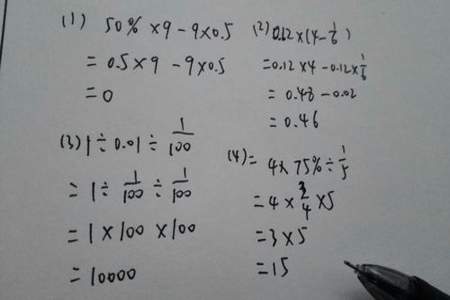 (1) 50% × 9 - 9 × 0.5
= 0.5 × 9 - 9 × 0.5
= 0
(2) 0.12 × (4 - 1/6)
= 0.12 × 4 - 0.12 × 1/6
= 0.48 - 0.02
= 0.46
(3) 1 ÷ 0.01 ÷ 1/100
= 1 ÷ 1/100 ÷ 1/100
= 1 × 100 × 100
= 10000
(4) = 4 × 75% ÷ 1/5
= 4 × 3/4 × 5
= 3 × 5
= 15